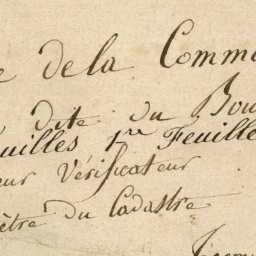 e de la Comm
dite du Bou
uilles 1re Feuille
eur Vérificateur
ètre du Cadastre